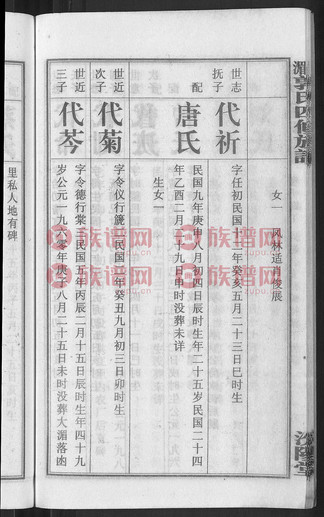 郭氏四修族譜
汾陽堂
女一 风林适肖俊展
世志
抚子
代祈
字任初民国十二年癸亥五月二十三日巳时生
配
唐氏
民国九年庚申八月初四日辰时生年二十五岁民国二十四
年乙酉二月二十九日申时没葬未详
生女一
世近
次子
代菊
字令仪行篪民国二年癸丑九月初三日卯时生
世近
三子
代芩
字令德行棠民国五年丙辰二月十五日辰时生年四十九
岁公元一九六零年庚子八月二十五日未时没葬大湄落凼
里私人地有碑
族谱网